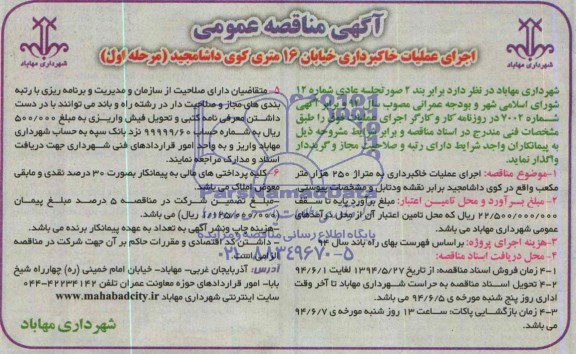 آگهی مناقصه عمومی
اجرای عملیات خاکبرداری خیابان ۱۶ متری کوی داشامجید (مرحله اول)
شهرداری مهاباد
شهرداری مهاباد
شهرداری مهاباد در نظر دارد برابر بند ۲ صورتجلسه عادی شماره ۱۲
شورای اسلامی شهر و بودجه عمرانی مصوب سال آگهی
شماره ۷۰۰۲ در روزنامه کار و کارگر اجرای عملیات فوق را طبق
مشخصات فنی مندرج در اسناد مناقصه و برابر شرایط مشروحه ذیل
به پیمانکاران واجد شرایط دارای رتبه و صلاحیت مجاز و گریددار
واگذار نماید.
۱-موضوع مناقصه: اجرای عملیات خاکبرداری به متراژ ۲۵۰ هزار متر
مکعب واقع در کوی داشامجید برابر نقشه ودتایل و مشخصات پیوستی.
۲- مبلغ برآورد و محل تامین اعتبار: مبلغ برآورد پایه تا سقف
۲۲/۵۰۰/۰۰۰/۰۰۰ ریال که محل تامین اعتبار آن از محل درآمدهای
عمومی شهرداری مهاباد می باشد.
۳-هزینه اجرای پروژه: براساس فهرست بهای راه باند سال ۹۴
۴- محل دریافت اسناد مناقصه:
۴-۱ زمان فروش اسناد مناقصه: از تاریخ ۱۳۹۴/۵/۲۷ لغایت ۹۴/۶/۱
۴-۲ تحویل اسناد مناقصه به حراست شهرداری مهاباد تا آخر وقت
اداری روز پنج شنبه مورخه ۹۴/۶/۵ می باشد.
۴-۳ زمان بازگشایی پاکات: ساعت ۱۳ روز شنبه مورخه ی ۹۴/۶/۷
۵- متقاضیان دارای صلاحیت از سازمان و مدیریت و برنامه ریزی با رتبه
بندی های مجاز و صلاحیت دار در رشته راه و باند می توانند با در دست
داشتن معرفی نامه کتبی و تحویل فیش واریزی به مبلغ ۵۰۰/۰۰۰
ریال به شماره حساب ۹۹۹۹۹/۶۰ نزد بانک سپه به حساب شهرداری
مهاباد واریز و به واحد امور قراردادهای فنی شهرداری جهت دریافت
اسناد و مدارک مراجعه نمایند.
۶-کلیه پرداختی های مالی به پیمانکار بصورت ۳۰ درصد نقدی و مابقی
معوض املاک می باشد.
-مبلغ تضمین شرکت در مناقصه ۵ درصد مبلغ پیمان
(۱/۱۲۵/۰۰۰/۰۰۰ ریال) می باشد.
-هزینه چاپ ونشر آگهی به تعداد به عهده پیمانکار برنده می باشد.
- داشتن کد اقتصادی و مقررات حاکم بر آن جهت شرکت در مناقصه
الزامی است.
آدرس: آذربایجان غربی- مهاباد- خیابان امام خمینی (ره) چهارراه شیخ
بابا- امور قراردادهای حوزه معاونت عمران تلفن ۴۲۲۳۴۱۴۲-۰۴۴
سایت اینترنتی شهرداری مهاباد www.mahabadcity.ir
شهرداری مهاباد
ParsNamadData
پایگاه اطلاع رسانی مناقصه و مزایده
۰۲۱-۸۸۳۴۹۶۷۰-۵